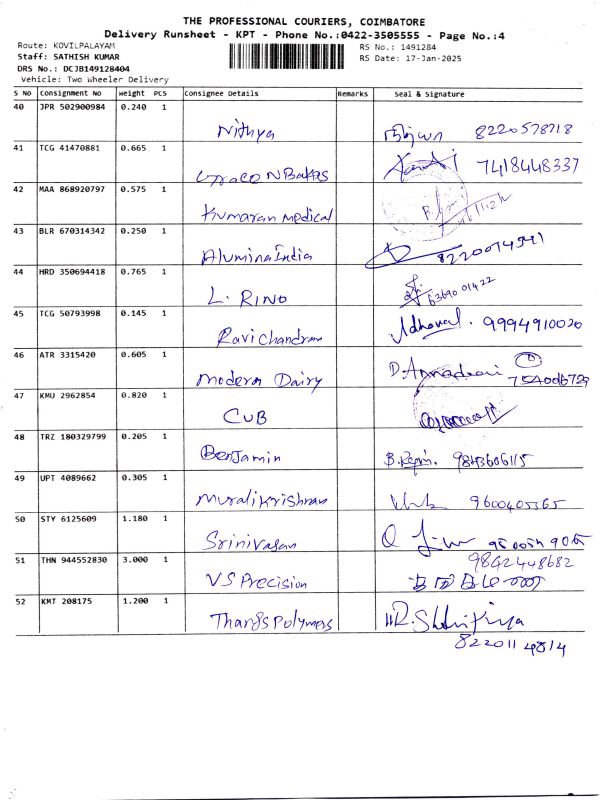 THE PROFESSIONAL COURIERS, COIMBATORE
Delivery Runsheet - KPT - Phone No.:0422-3505555 - Page No.:4
Route: KOVILPALAYAM RS No.: 1491284
Staff: SATHISH KUMAR RS Date: 17-Jan-2025
DRS No.: DCJB149128404
Vehicle: Two Wheeler Delivery
S No Consignment No Weight PCS Consignee Details Remarks Seal & Signature
40 JPR 502900984 0.240 1
Nithya 8220578718
41 TCG 41470881 0.665 1
Grace N Bakes 7418448337
42 MAA 868920797 0.575 1
Kumaran Medical
43 BLR 670314342 0.250 1
Alumina India 8220074541
44 HRD 350694418 0.765 1
L. RINO 6369001422
45 TCG 50793998 0.145 1
Ravichandran 9994910020
46 ATR 3315420 0.605 1
Modern Dairy
47 KMU 2962854 0.820 1
CUB
48 TRZ 180329799 0.205 1
Benjamin 9843606115
49 UPT 4089662 0.305 1
Muralikrishnan 9600405365
50 STY 6125609 1.180 1
Srinivasan
51 THN 944552830 3.000 1 9842448682
VS Precision
52 KMT 208175 1.200 1
Thangs Polymers
8220114814